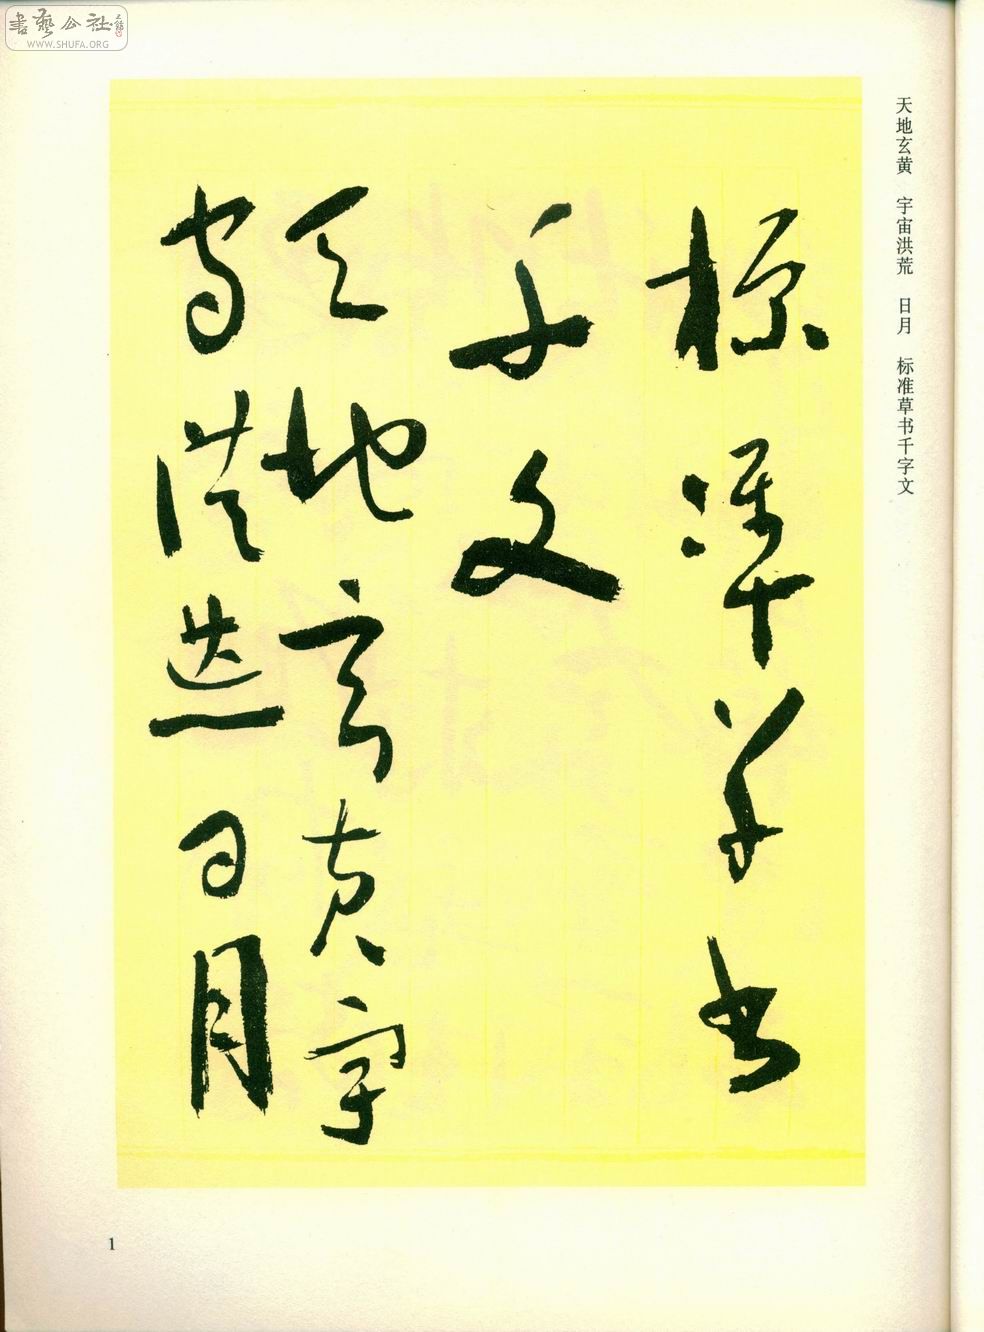 書藝公社
WWW.SHUFA.ORG
天地玄黄 宇宙洪荒 日月 标准草书千字文
標準草書
千文
天地玄黃宇
宙洪荒日月
1